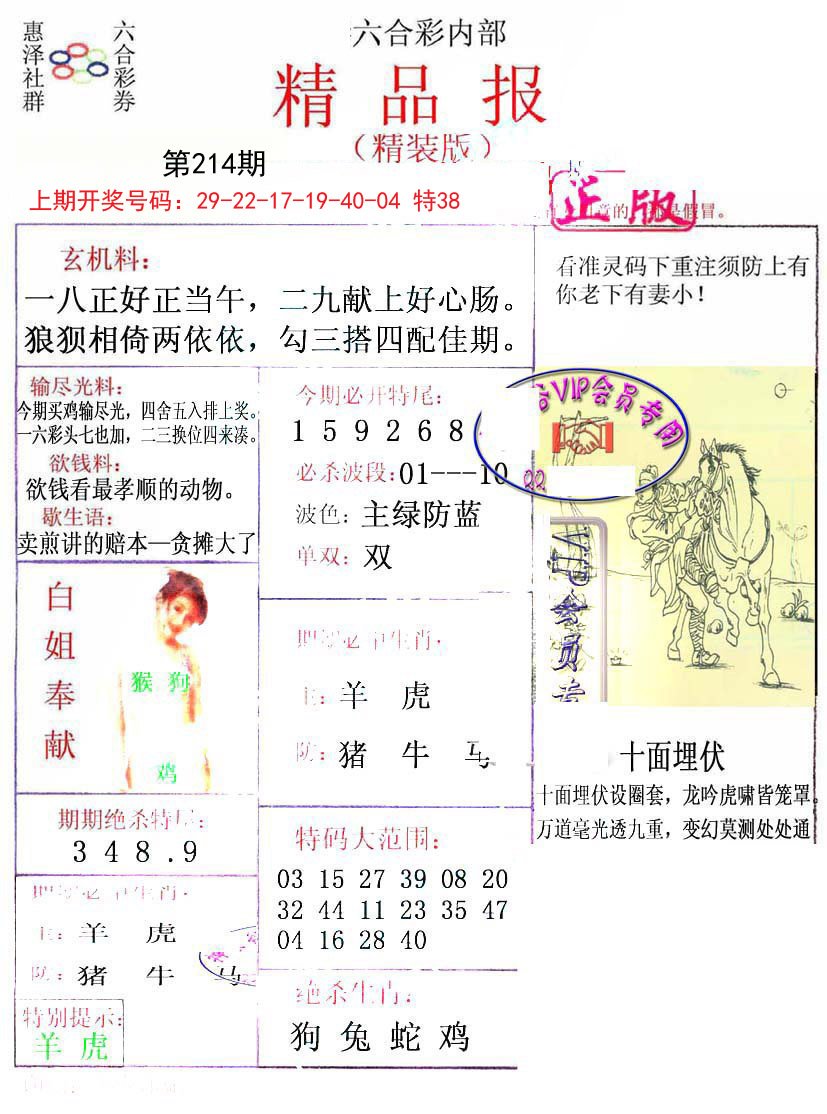 惠泽社群
六合彩券
六合彩内部
精品报
（精装版）
第214期
上期开奖号码：29-22-17-19-40-04 特38
正版
的
是假冒。
玄机料：
一八正好正当午，二九献上好心肠。
狼狈相倚两依依，勾三搭四配佳期。
看准灵码下重注须防上有
你老下有妻小！
输尽光料：
今期买鸡输尽光，四舍五入排上奖。
一六彩头七也加，二三换位四来凑。
欲钱料：
欲钱看最孝顺的动物。
歇生语：
卖煎讲的赔本—贪摊大了
今期必开特尾：
1 5 9 2 6 8
必杀波段：01---10
波色：主绿防蓝
单双：双
VIP会员专用
QQ
VIP会员专
白姐奉献
猴 狗
鸡
主：羊 虎
防：猪 牛 马
十面埋伏
十面埋伏设圈套，龙吟虎啸皆笼罩。
万道毫光透九重，变幻莫测处处通
期期绝杀特尾：
3 4 8 . 9
特码大范围：
03 15 27 39 08 20
32 44 11 23 35 47
04 16 28 40
主：羊 虎
防：猪 牛 马
绝杀生肖：
狗 兔 蛇 鸡
特别提示：
羊 虎